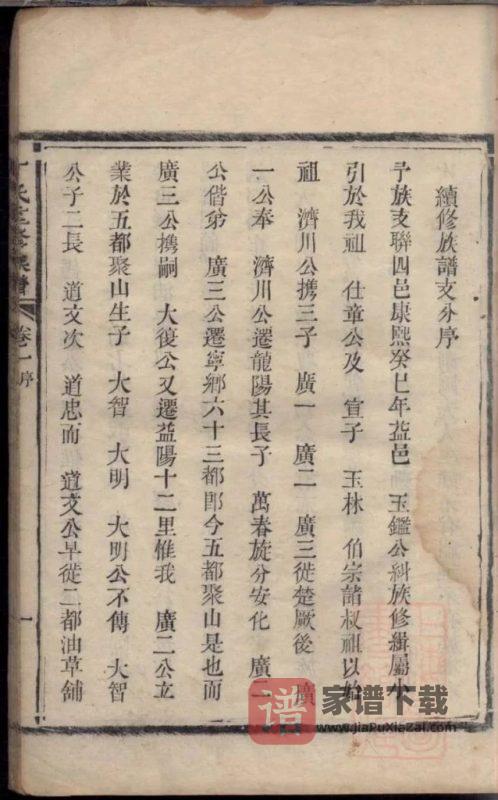 續修族譜支分序
予族支聯四邑康熙癸巳年益邑 玉鑑公糾族修緝屬小
引於我祖 仕章公及 宣子 玉林 伯宗諸叔祖以始
祖 濟川公携三子 廣一 廣二 廣三徙楚厥後 廣
一公奉 濟川公遷龍陽其長子 萬春旋分安化 廣二
公偕弟 廣三公遷寧鄉六十三都即今五都聚山是也而
廣三公携嗣 大復公又遷益陽十二里惟我 廣二公立
業於五都聚山生子 大智 大明 大明公不傳 大智
公子二長 道文次 道忠而 道文公早徙二都油草舖
氏 修族譜
卷一 序
一
譜
家谱下载
www.jiaPuXiaZai.com